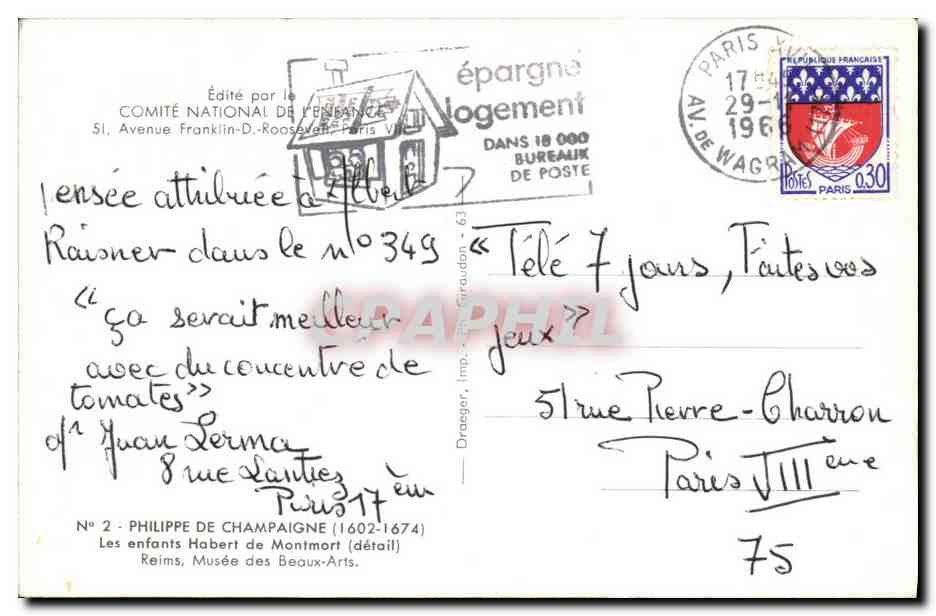 Édité par le
COMITÉ NATIONAL DE L'ENFANCE
51, Avenue Franklin-D.-Roosevelt, Paris VIIIe
épargne
logement
DANS 18 000
BUREAUX
DE POSTE
PARIS XVII
17H4
29-1
1966
AV. DE WAGRAM
REPUBLIQUE FRANÇAISE
POSTES PARIS 0,30
Pensée attribuée à Albert
Raisner dans le n° 349
« ça serait meilleur
avec du concentré de
tomates »
Juan Lerma
8 rue
Paris 17 èm
N° 2 - PHILIPPE DE CHAMPAIGNE (1602-1674)
Les enfants Habert de Montmort (détail)
Reims, Musée des Beaux-Arts.
Draeger, Imp. - Ph. Giraudon - 63
« Télé 7 jours, Faites vos
jeux »
51 rue Pierre-Charron
Paris VIII ème
75
CPAPHIL